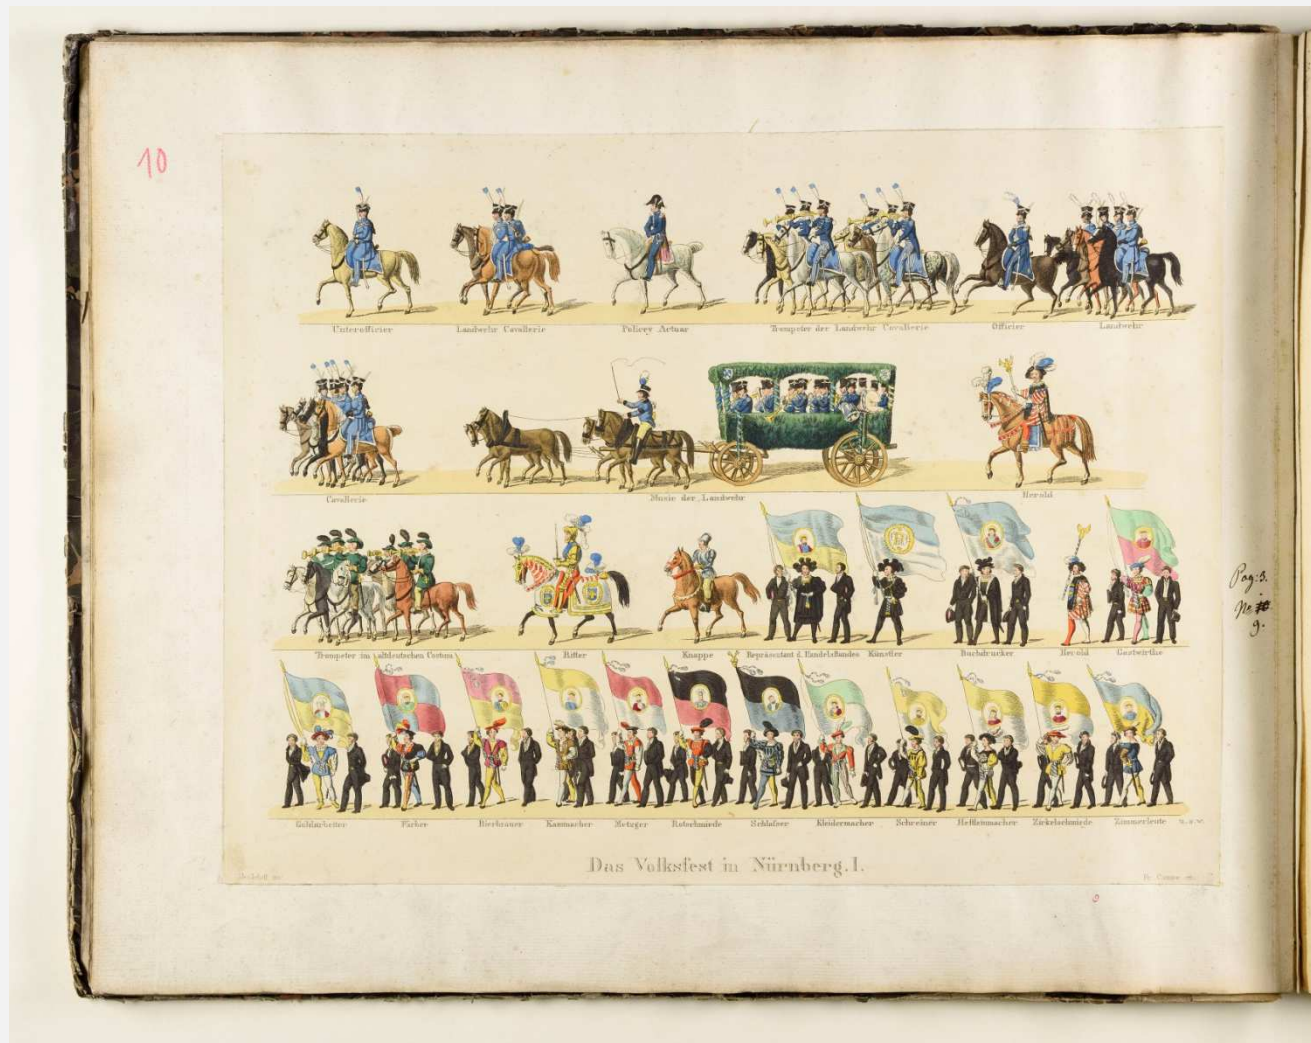 10
Unterofficier Landwehr Cavallerie Policey Actuar Trompeter der Landwehr Cavallerie Officier Landwehr
Cavallerie Music der Landwehr Herold
Trompeter im altdeutschen Costum Ritter Knappe Repräsentant d. Handelsstandes Künstler Buchdrucker Herold Gastwirthe
Pag: 3.
No
9.
Goldarbeiter Färber Bierbrauer Kammacher Metzger Rotschmiede Schlosser Kleidermacher Schreiner Heftleinmacher Zirkelschmiede Zimmerleute u. s. w.
Das Volksfest in Nürnberg. I.